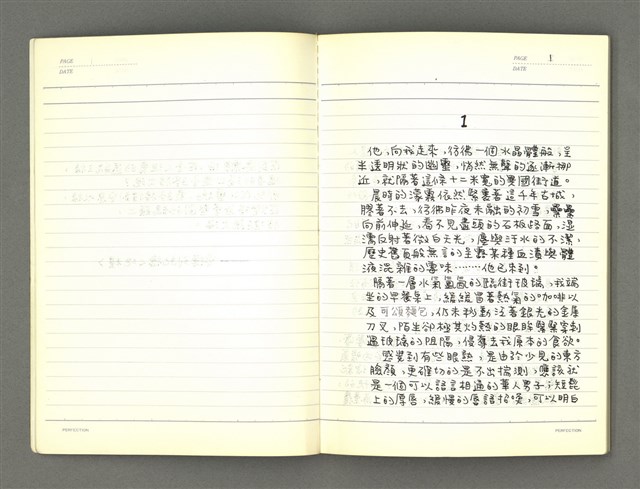 PAGE
DATE
PERFECTION
PAGE 1
DATE
1
他，向我走來，彷彿一個水晶體般，呈
半透明狀的幽靈，悄然無聲的逐漸挪
近，就隔著這條十二米寬的異國街道。
晨時的濃霧依然緊裹著這千年古城，
膠著不去，彷彿昨夜未融的初雪，纍纍
向前伸延，看不見盡頭的石板路面，溼
濡反射著微白天光，塵與汙水的不潔，
歷史舊頁般無言的呈露某種血漬與體
液混雜的霉味………他已來到。
隔著一層水氣氤氳的臨街玻璃，我端
坐的早餐桌上，緩緩冒著熱氣的咖啡以
及可頌麵包，仍未移動泛著銀光的金屬
刀叉，陌生卻極其灼熱的眼眸緊緊穿刺
過玻璃的阻隔，侵奪去我原本的食欲。
感覺到有些眼熟，是由於少見的東方
臉顏，更確切的是不出揣測，應該就
是一個可以語言相通的華人男子；短髭
上的厚唇，緩慢的唇語招喚，可以明白
PERFECTION